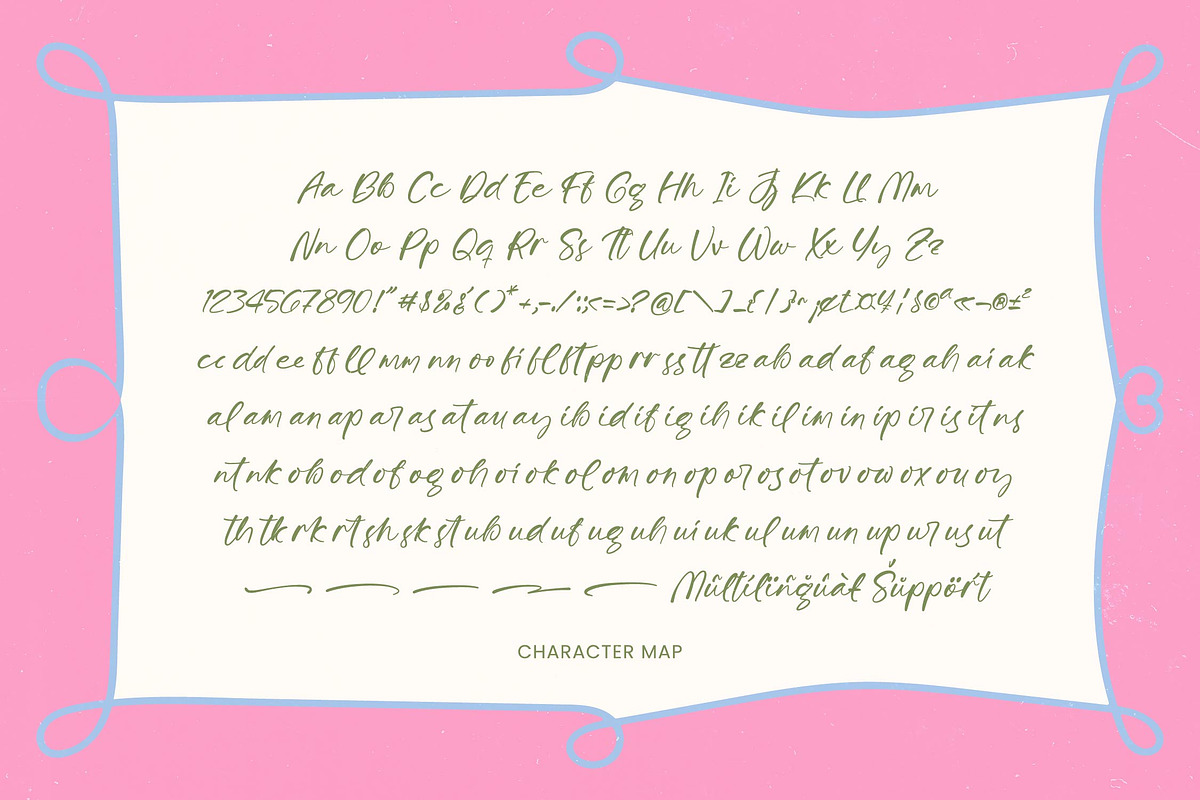 Aa Bb Cc Dd Ee Ff Gg Hh Ii Jj Kk Ll Mm
Nn Oo Pp Qq Rr Ss Tt Uu Vv Ww Xx Yy Zz
1234567890!"#$%&'()*+,-./:;<=>?@[\]_{|}~¡¢£¤¥¦§©ª«¬®±²
cc dd ee ff ll mm nn oo fi fl ft pp rr ss tt zz ab ad af ag ah ai ak
al am an ap ar as at au ay ib id if ig ih ik il im in ip ir is it ns
nt nk ob od of og oh oi ok ol om on op or os ot ov ow ox ou oy
th tk rk rt sh sk st ub ud uf ug uh ui uk ul um un up ur us ut
CHARACTER MAP